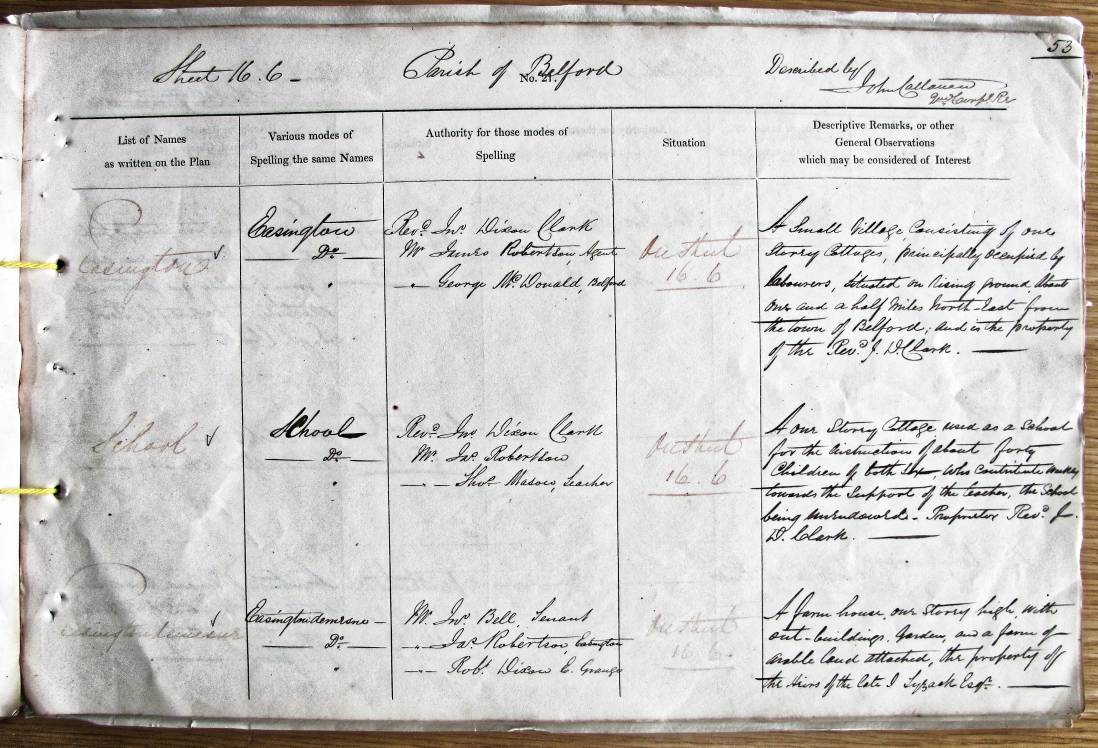 53
Sheet 16.6 - Parish of Belford Described by
No. 21. John Callanan
Corpl. R.E.
List of Names
as written on the Plan
Various modes of
Spelling the same Names
Authority for those modes of
Spelling
Situation
Descriptive Remarks, or other
General Observations
which may be considered of Interest
Easington
Easington
Do.
"
Revd. Jno. Dixon Clark
Mr James Robertson Agent
" George McDonald, Belford
On Sheet
16.6
A Small Village, Consisting of one
Storey Cottages, principally occupied by
labourers, Situated on Rising ground About
one and a half Miles North-East from
the town of Belford; and is the property
of the Revd. J. D. Clark.
School
School
Do.
"
Revd. Jno. Dixon Clark
Mr. Jas. Robertson
" Thos. Mason, Teacher
On Sheet
16.6
A one Storey Cottage used as a School
for the instruction of about forty
Children of both Sex, who contribute weekly
towards the Support of the teacher, the School
being unendowed - Proprietor Revd. J.
D. Clark.
Easington demesne
Easington demesne -
Do.
"
Mr. Jno. Bell, Tenant
" Jas. Robertson, Easington
" Robt. Dixon E. Grange
On Sheet
16.6
A farm house, one Storey high with
out-buildings, Garden, and a farm of
arable land attached, the property of
the Heirs of the late I Lyzack Esqr.